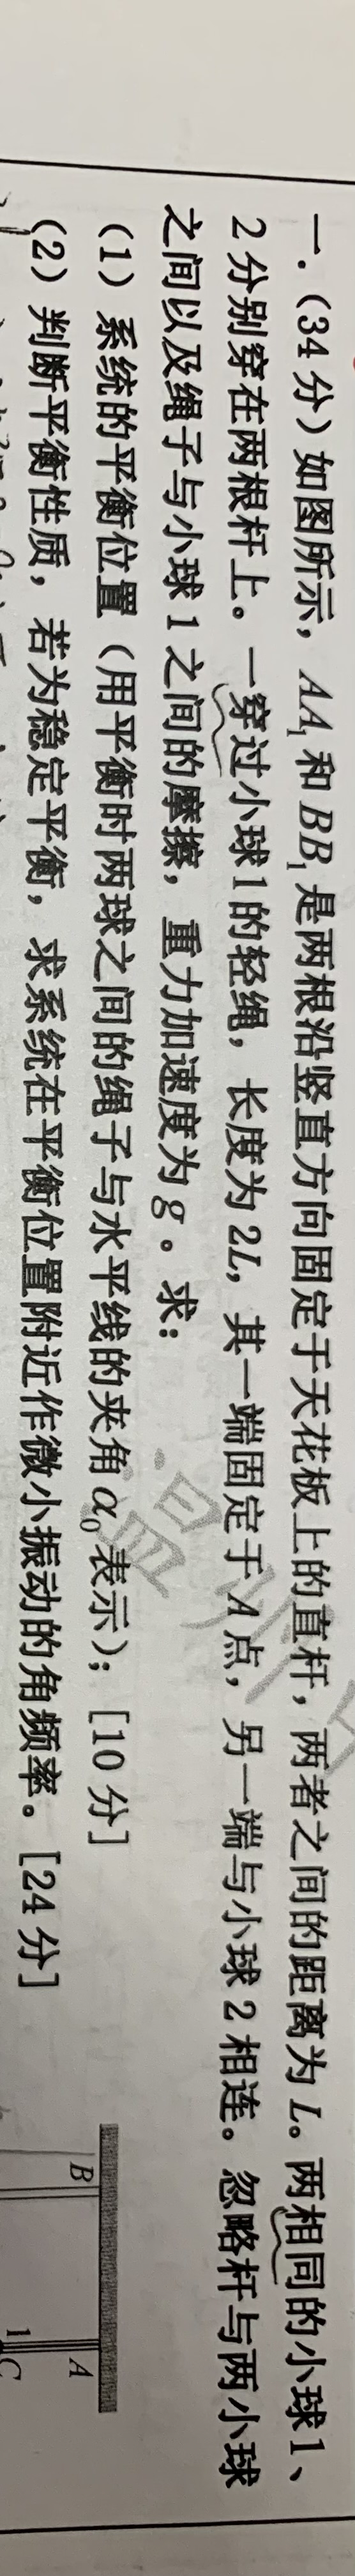 一.(34分)如图所示,AA₁和BB₁是两根沿竖直方向固定于天花板上的直杆,两者之间的距离为L。两相同的小球1、
2分别穿在两根杆上。一穿过小球1的轻绳,长度为2L,其一端固定于A点,另一端与小球2相连。忽略杆与两小球
之间以及绳子与小球1之间的摩擦,重力加速度为g。求:
(1)系统的平衡位置(用平衡时两球之间的绳子与水平线的夹角α₀表示);[10分]
(2)判断平衡性质,若为稳定平衡,求系统在平衡位置附近作微小振动的角频率。[24分]
B A
1 C